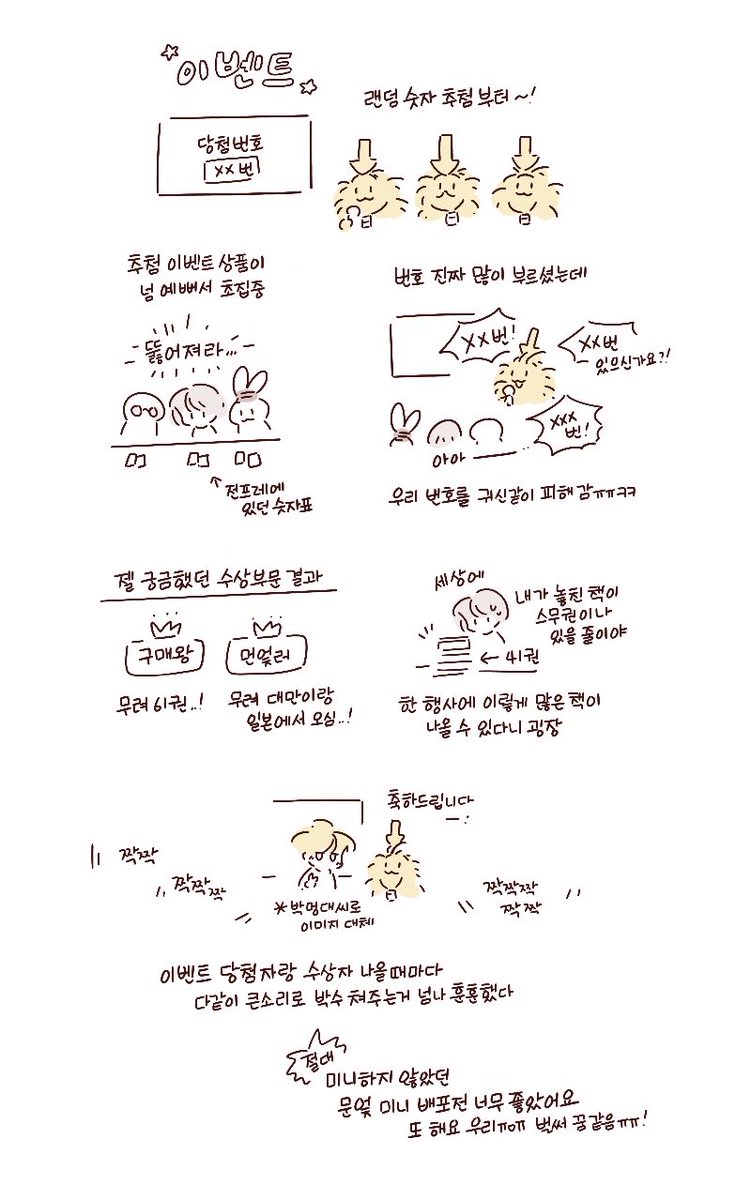 이벤트
랜덤 숫자 추첨부터~!
당첨번호
××번
추첨 이벤트 상품이
넘 예뻐서 초집중
뚫어져라...
↑전프레에
있던 숫자표
번호 진짜 많이 부르셨는데
××번!
××번
있으신가요?!
×××
번!
아아
우리 번호를 귀신같이 피해감ㅠㅠㅋㅋ
젤 궁금했던 수상부문 결과
구매왕
먼얼러
무려 61권..!
무려 대만이랑
일본에서 오심..!
세상에
내가 놓친 책이
스무권이나
있을 줄이야
← 41권
한 행사에 이렇게 많은 책이
나올 수 있다니 굉장
축하드립니다
짝짝
짝짝짝
짝짝짝
짝짝
*박멍대씨로
이미지 대체
이벤트 당첨자랑 수상자 나올때마다
다같이 큰소리로 박수 쳐주는거 넘나 훈훈했다
절대
미니하지 않았던
문엋 미니 배포전 너무 좋았어요
또 해요 우리ㅠㅇㅠ 벌써 꿈같음ㅠㅠ!